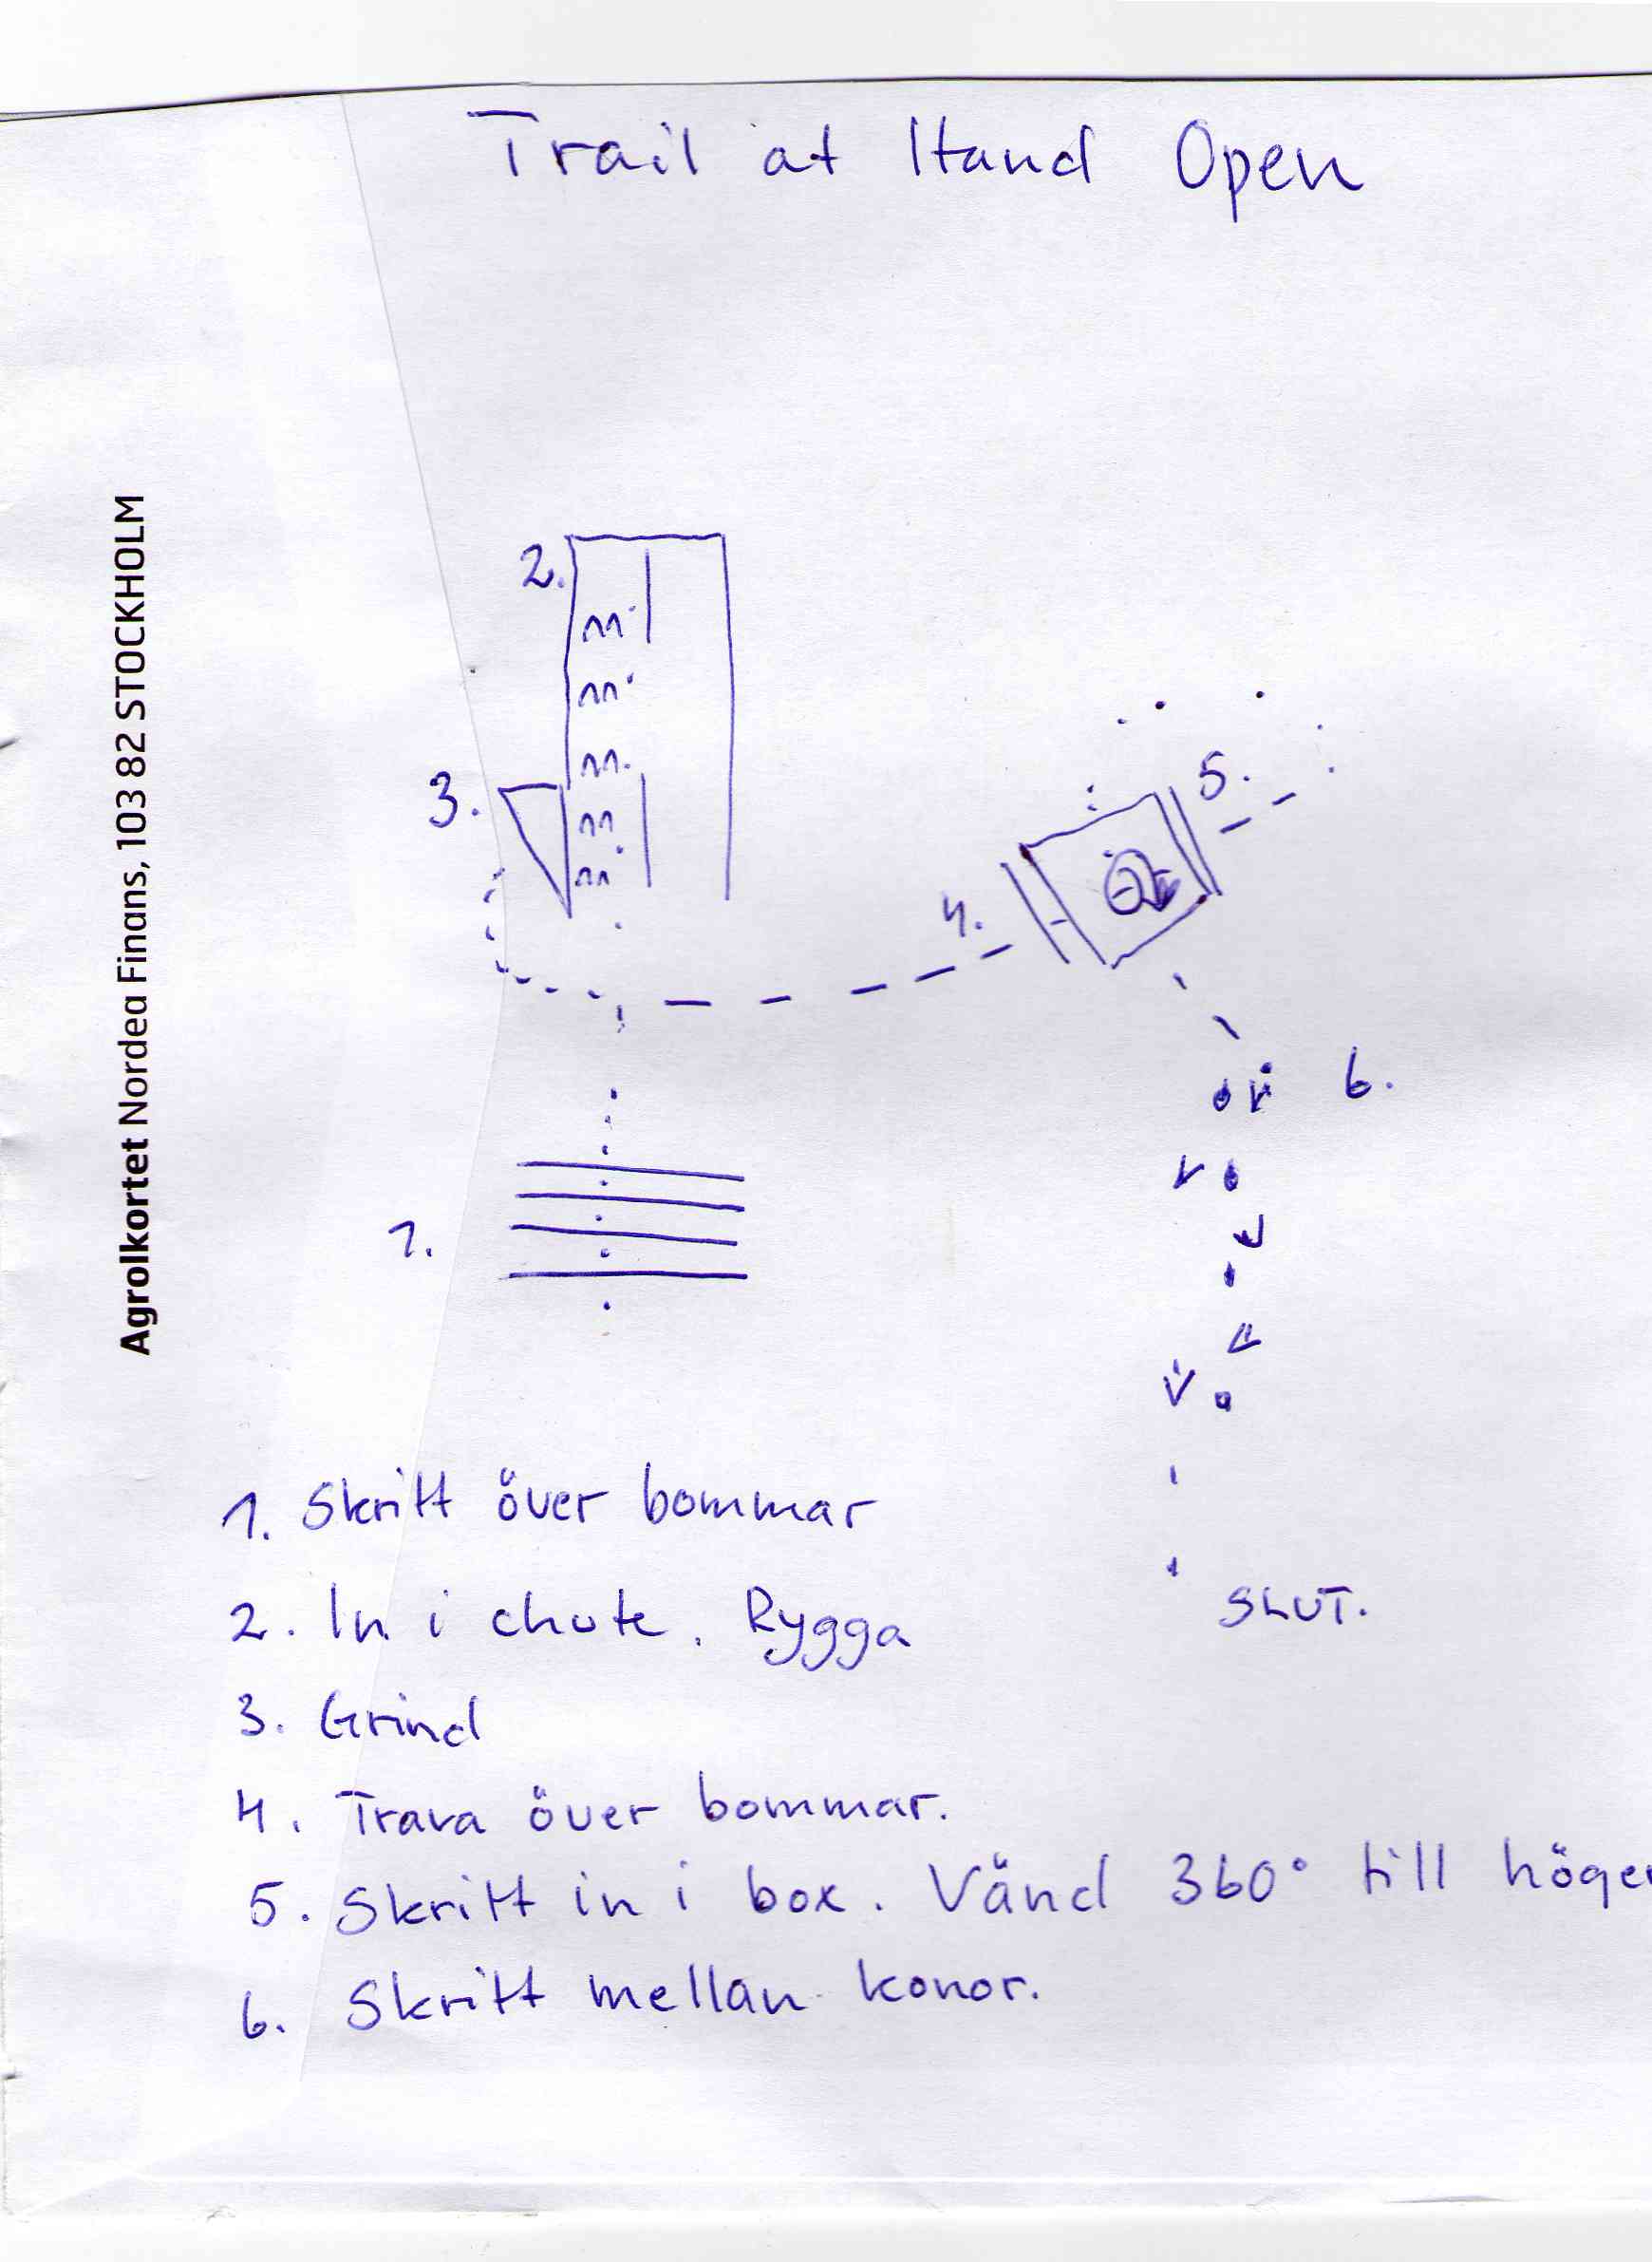 Trail at Hand Open
Agrolkortet Nordea Finans, 103 82 STOCKHOLM
2.
3.
5.
4.
6.
1.
SLUT.
1. Skritt över bommar
2. In i chute. Rygga
3. Grind
4. Trava över bommar.
5. Skritt in i box. Vänd 360° till höger
6. Skritt mellan konor.